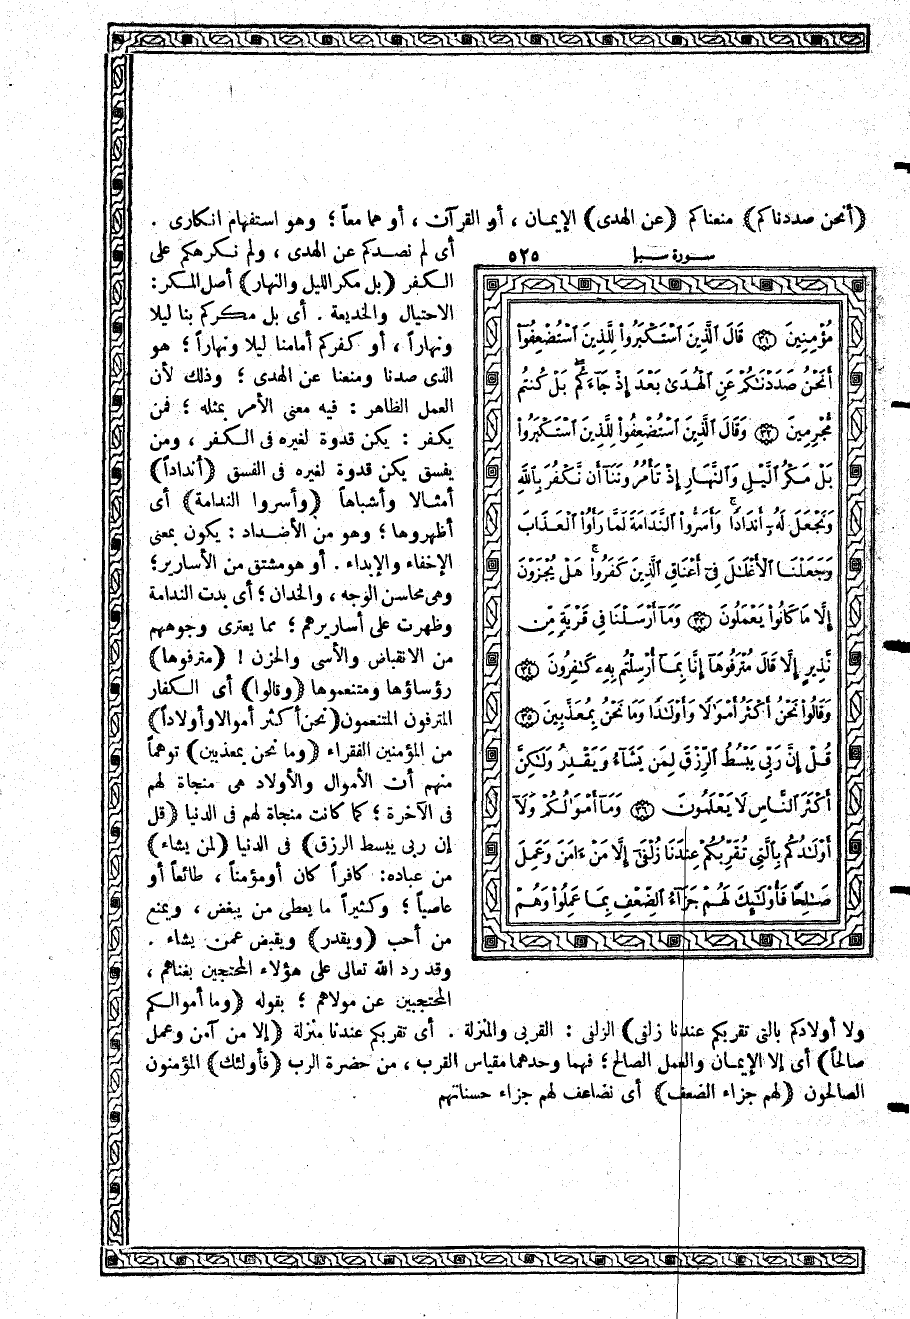 (أنحن صددناكم) منعناكم (عن الهدى) الإيمان ، أو القرآن ، أو هما معاً ؛ وهو استفهام انكارى .
أى لم نصدكم عن الهدى ، ولم نكرهكم على
الكفر (بل مكر الليل والنهار) أصل المكر :
الاحتيال والخديعة . أى بل مكركم بنا ليلا
ونهاراً ، أو كفركم أمامنا ليلا ونهاراً ؛ هو
الذى صدنا ومنعنا عن الهدى ؛ وذلك لأن
العمل الظاهر : فيه معنى الأمر بمثله ؛ فمن
يكفر : يكن قدوة لغيره فى الكفر ، ومن
يفسق يكن قدوة لغيره فى الفسق (أنداداً)
أمثالا وأشباهاً (وأسروا الندامة) أى
أظهروها ؛ وهو من الأضداد : يكون بمعنى
الإخفاء والإبداء . أو هو مشتق من الأسارير ؛
وهى محاسن الوجه ، والخدان ؛ أى بدت الندامة
وظهرت على أساريرهم ؛ مما يعترى وجوههم
من الانقباض والأسى والحزن ! (مترفوها)
رؤساؤها ومتنعموها (وقالوا) أى الكفار
المترفون المتنعمون (نحن أكثر أموالا وأولاداً)
من المؤمنين الفقراء (وما نحن بمعذبين) توهماً
منهم أن الأموال والأولاد هى منجاة لهم
فى الآخرة ؛ كما كانت منجاة لهم فى الدنيا (قل
إن ربى يبسط الرزق) فى الدنيا (لمن يشاء)
من عباده : كافراً كان أو مؤمناً ، طائعاً أو
عاصياً ؛ وكثيراً ما يعطى من يبغض ، ويمنع
من أحب (ويقدر) ويقبض عمن يشاء .
وقد رد الله تعالى على هؤلاء المحتجين بغناهم ،
المحتجبين عن مولاهم ؛ بقوله (وما أموالكم
ولا أولادكم بالتى تقربكم عندنا زلفى) الزلفى : القربى والمنزلة . أى تقربكم عندنا منزلة (إلا من آمن وعمل
صالحاً) أى إلا الإيمان والعمل الصالح ؛ فهما وحدهما مقياس القرب ، من حضرة الرب (فأولئك) المؤمنون
الصالحون (لهم جزاء الضعف) أى نضاعف لهم جزاء حسناتهم
سورة سبإ ٥٢٥
مُّؤْمِنِينَ ٣١ قَالَ الَّذِينَ اسْتَكْبَرُواْ لِلَّذِينَ اسْتُضْعِفُوٓاْ
أَنَحْنُ صَدَدْنَٰكُمْ عَنِ الْهُدَىٰ بَعْدَ إِذْ جَآءَكُم بَلْ كُنتُم
مُّجْرِمِينَ ٣٢ وَقَالَ الَّذِينَ اسْتُضْعِفُواْ لِلَّذِينَ اسْتَكْبَرُواْ
بَلْ مَكْرُ الَّيْلِ وَالنَّهَارِ إِذْ تَأْمُرُونَنَآ أَن نَّكْفُرَ بِاللَّهِ
وَنَجْعَلَ لَهُۥٓ أَندَادًا وَأَسَرُّواْ النَّدَامَةَ لَمَّا رَأَوُاْ الْعَذَابَ
وَجَعَلْنَا الْأَغْلَٰلَ فِىٓ أَعْنَاقِ الَّذِينَ كَفَرُواْ هَلْ يُجْزَوْنَ
إِلَّا مَا كَانُواْ يَعْمَلُونَ ٣٣ وَمَآ أَرْسَلْنَا فِى قَرْيَةٍ مِّن
نَّذِيرٍ إِلَّا قَالَ مُتْرَفُوهَآ إِنَّا بِمَآ أُرْسِلْتُم بِهِۦ كَٰفِرُونَ ٣٤
وَقَالُواْ نَحْنُ أَكْثَرُ أَمْوَٰلًا وَأَوْلَٰدًا وَمَا نَحْنُ بِمُعَذَّبِينَ ٣٥
قُلْ إِنَّ رَبِّى يَبْسُطُ الرِّزْقَ لِمَن يَشَآءُ وَيَقْدِرُ وَلَٰكِنَّ
أَكْثَرَ النَّاسِ لَا يَعْلَمُونَ ٣٦ وَمَآ أَمْوَٰلُكُمْ وَلَآ
أَوْلَٰدُكُم بِالَّتِى تُقَرِّبُكُمْ عِندَنَا زُلْفَىٰٓ إِلَّا مَنْ ءَامَنَ وَعَمِلَ
صَٰلِحًا فَأُوْلَٰٓئِكَ لَهُمْ جَزَآءُ الضِّعْفِ بِمَا عَمِلُواْ وَهُمْ